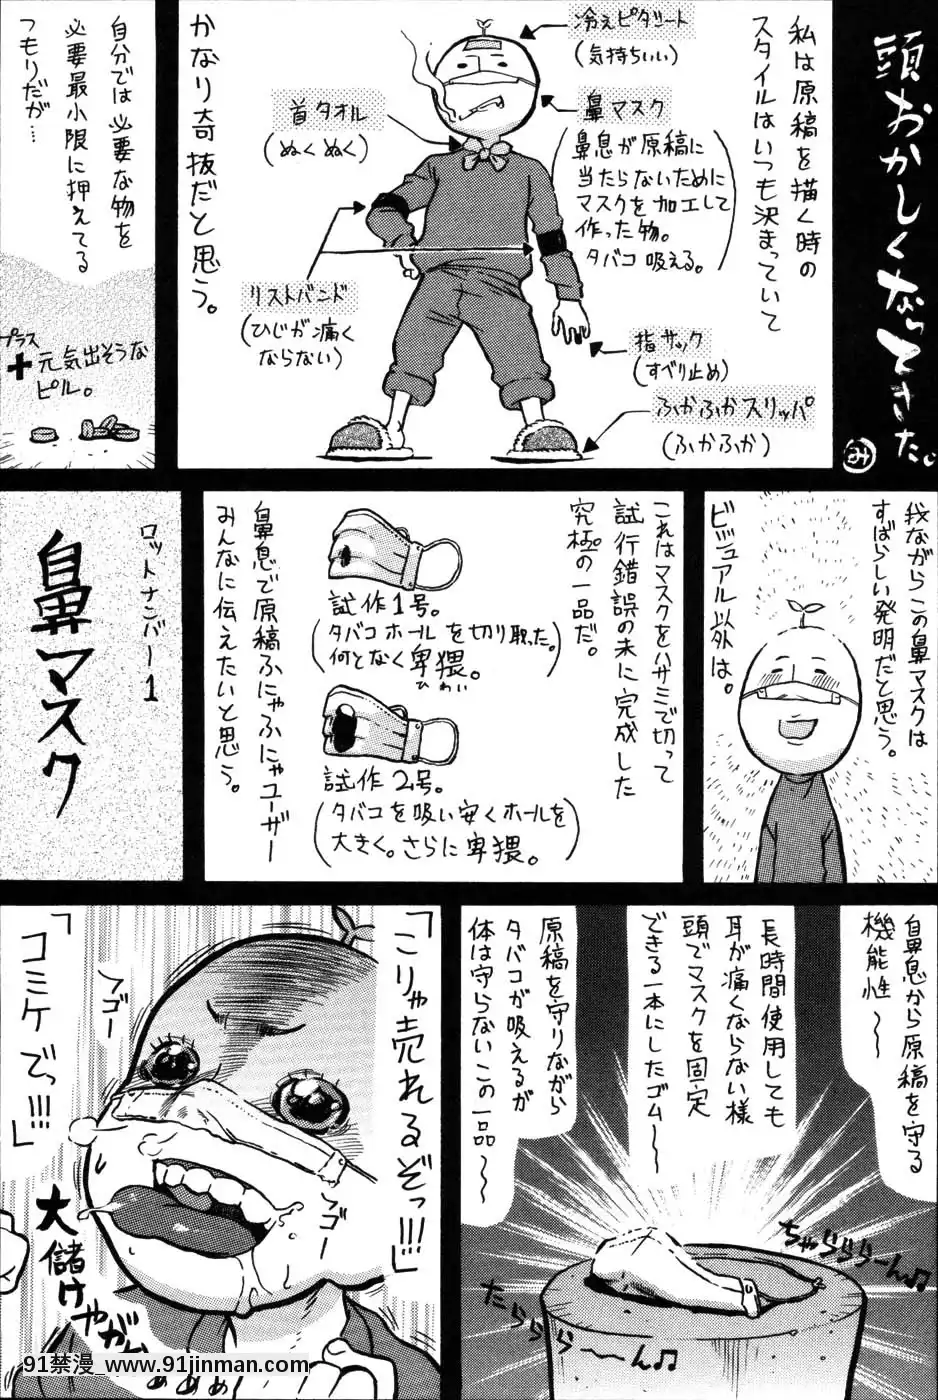 頭おかしくなってきた。
み
私は原稿を描く時の
スタイルはいつも決まっていて
冷えピタシート
(気持ちいい)
鼻マスク
鼻息が原稿に
当たらないために
マスクを加工して
作った物。
タバコ吸える。
首タオル
(ぬくぬく)
リストバンド
(ひじが痛く
ならない)
指サック
(すべり止め)
ふかふかスリッパ
(ふかふか)
かなり奇抜だと思う。
自分では必要な物を
必要最小限に押えてる
つもりだが…
プラス
+元気出そうな
ピル。
我ながらこの鼻マスクは
すばらしい発明だと思う。
ビジュアル以外は。
これはマスクをハサミで切って
試行錯誤の末に完成した
究極の一品だ。
試作1号。
(タバコホールを切り取った。
何となく卑猥。)
ひわい
試作2号。
(タバコを吸い安くホールを
大きく。さらに卑猥。)
鼻息で原稿ふにゃふにゃユーザー
みんなに伝えたいと思う。
ロットナンバー1
鼻マスク
鼻息から原稿を守る
機能性〜
長時間使用しても
耳が痛くならない様
頭でマスクを固定
できる一本にしたゴム〜
原稿を守りながら
タバコが吸えるが
体は守らないこの一品〜
ちゃらららーん♫
たららら〜〜ん♫
「こりゃ売れるぞっ!!!」
「コミケでっ!!!」
フゴー
フゴー
大儲けやがな
91禁漫_www.91jinman.com